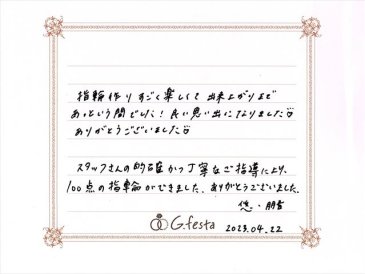 指輪作りすごく楽しくて出来上がりまで
あっという間でした！良い思い出になりました
ありがとうございました
スタッフさんの的確かつ丁寧なご指導により、
100点の指輪ができました。ありがとうございました。
悠・朋香
G.festa
2023.04.22